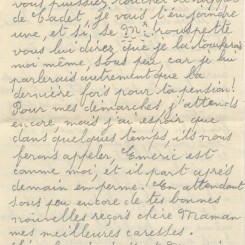 vous puissiez toucher
de Cadet. Je vous l'enjoindre
une, et si, Le Mr. rouspette
vous lui direz que je la toucherai
moi même, sous peu, car je lui
parlerais autrement que la
dernière fois pour ta pension!
Pour mes démarches j'attends
encore, mais j'ai espoir que
dans quelques temps, ils nous
feront appeler, Emeric est
comme moi, et il part après
demain en perme. En attendant
sous peu encore de tes bonnes
nouvelles reçois chère Maman
mes meilleures caresses.